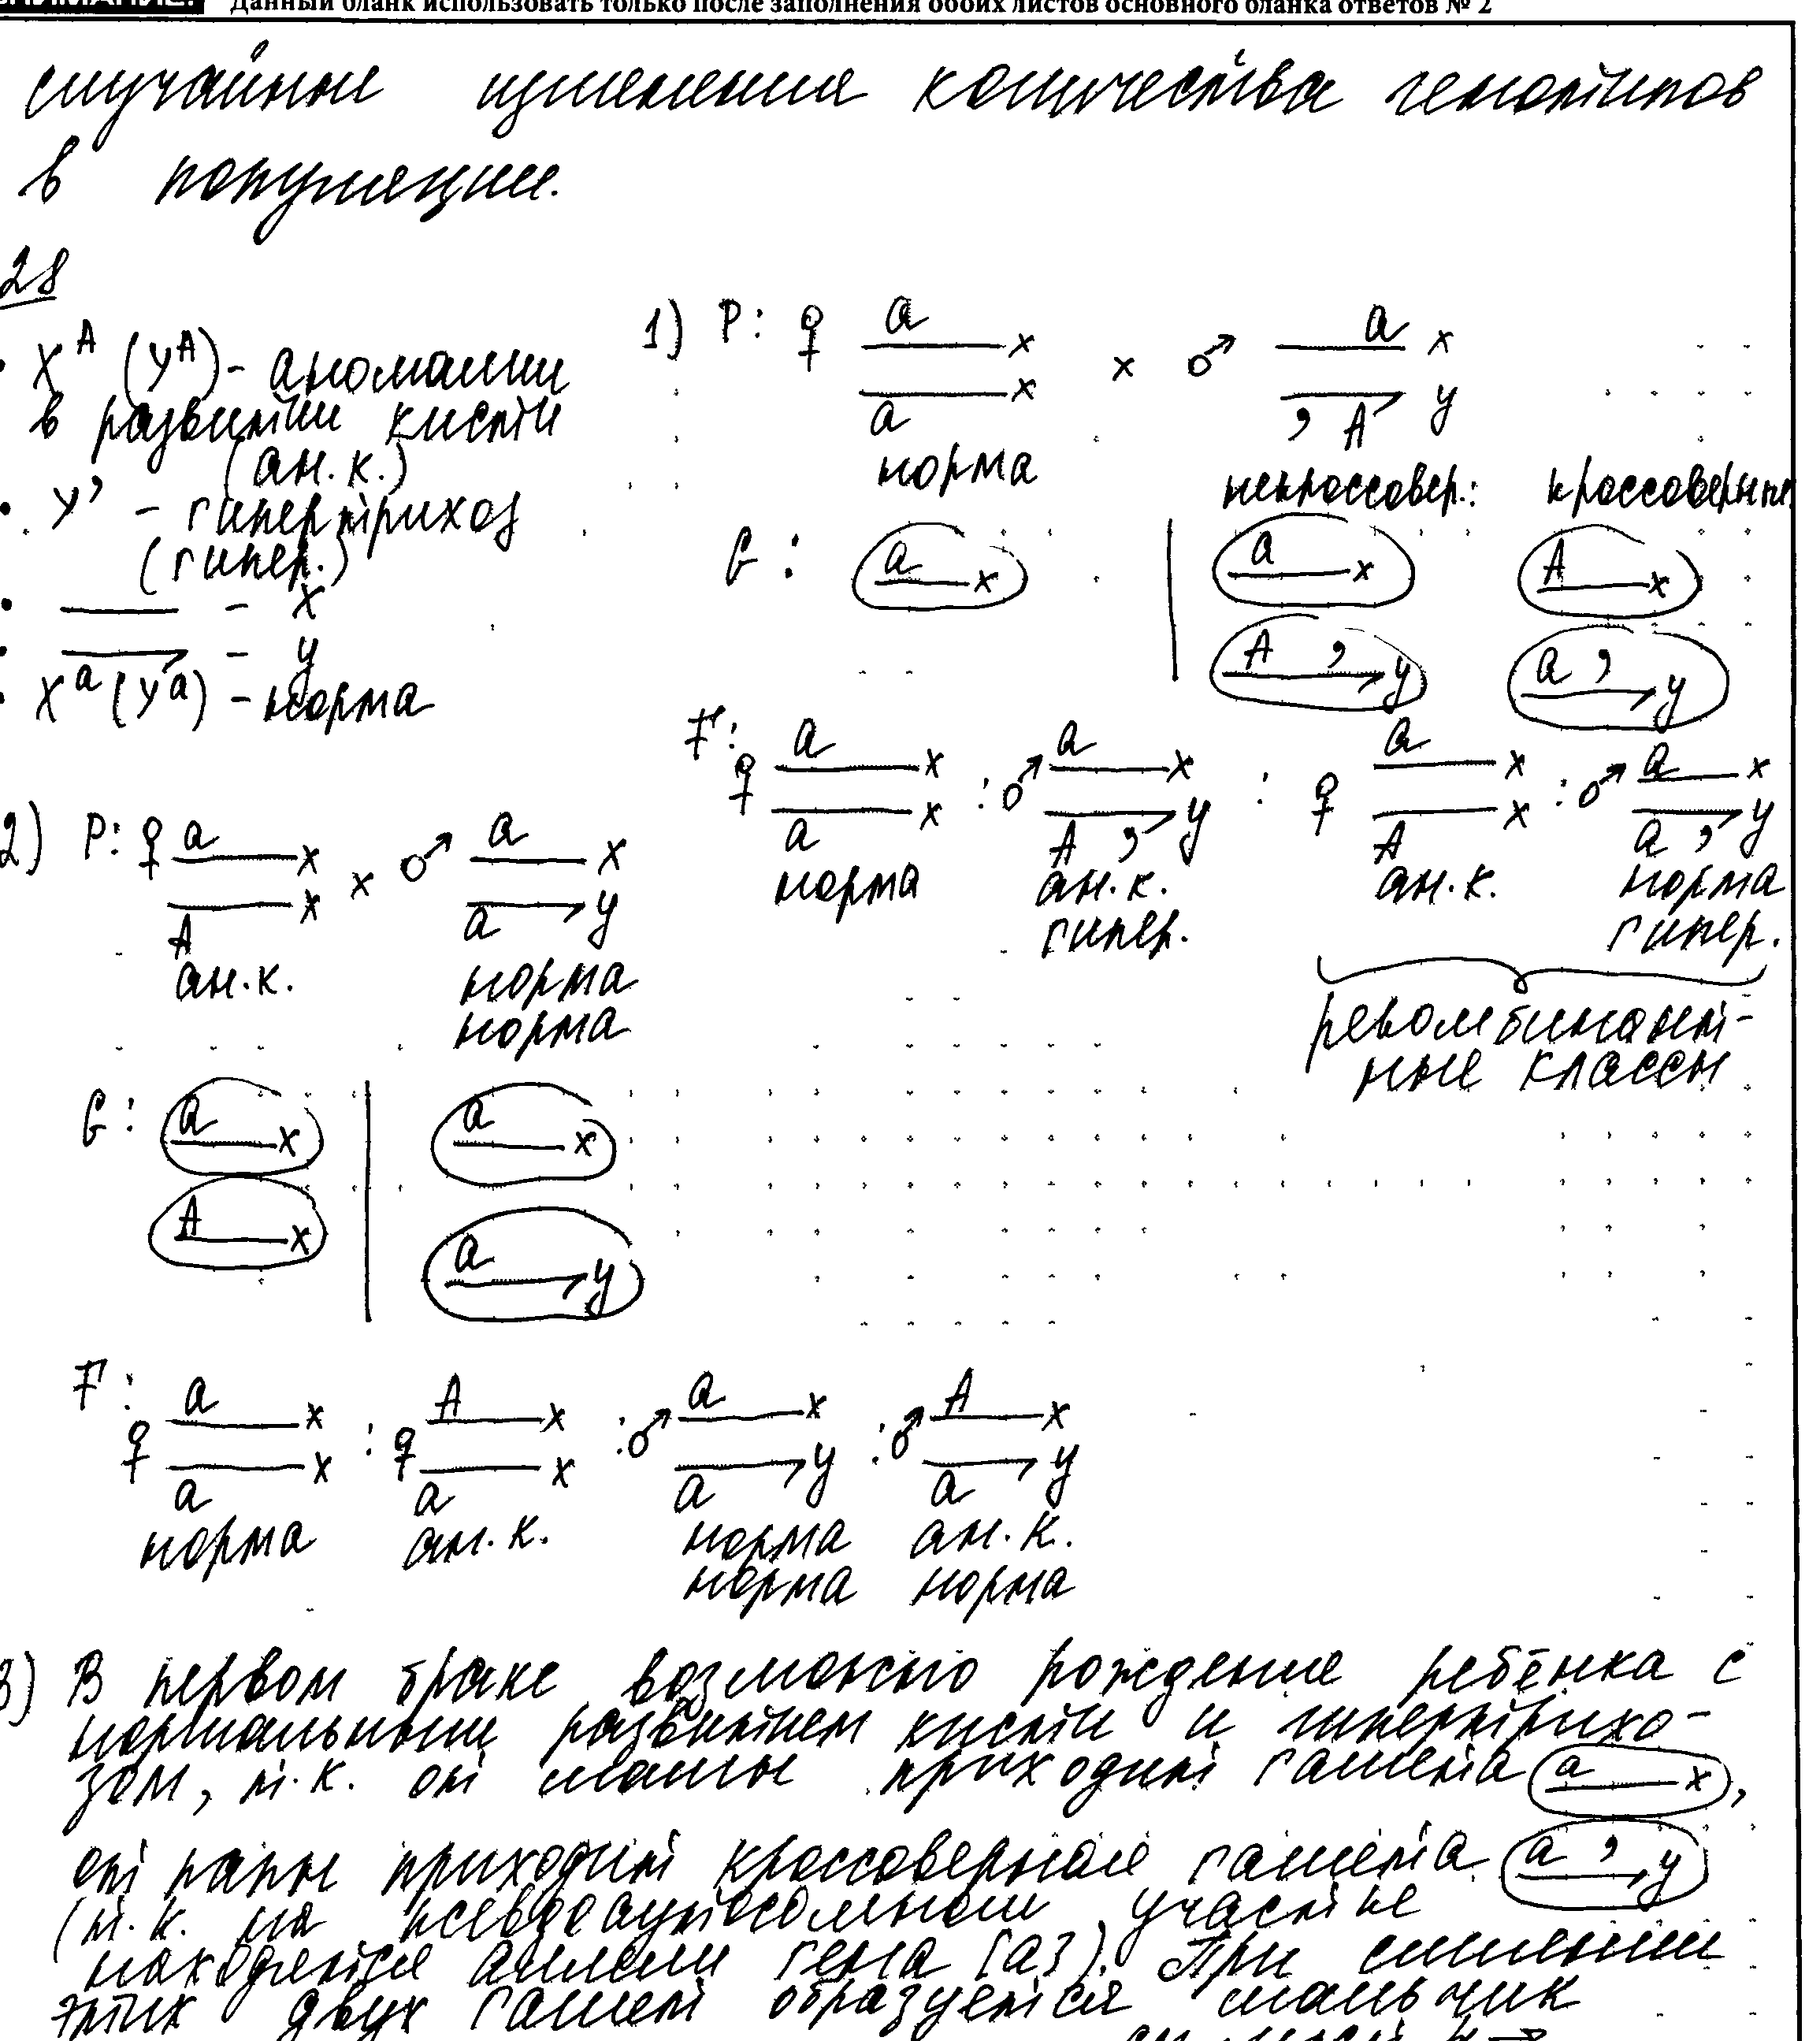 Данный бланк использовать только после заполнения обоих листов основного бланка ответов № 2
случайные изменения количества генотипов
в популяции.
28
• X^A (Y^A) - аномалии
в развитии кисти
(ан. к.)
• Y' - гипертрихоз
(гипер.)
• ——— - x
• ———⇀ - y
• X^a (Y^a) - норма
1) P: ♀ a x
a x
норма
x ♂ a x
, A y
некроссовер.: кроссоверные
G: a x | a x A x
A , y a , y
F: ♀ a x : ♂ a x : ♀ a x : ♂ a x
a x A , y A x a , y
норма ан.к. ан.к. норма
гипер. гипер.
рекомбинант-
ные классы
2) P: ♀ a x x ♂ a x
A x a y
ан.к. норма
норма
G: a x | a x
A x a y
F: ♀ a x : ♀ A x : ♂ a x : ♂ A x
a x a x a y a y
норма ан.к. норма ан.к.
норма норма
3) В первом браке возможно рождение ребёнка с
нормальным развитием кисти и гипертрихо-
зом, т.к. от мамы приходит гамета a x,
от папы приходит кроссоверная гамета a , y
(т.к. на псевдоаутосомном участке
находятся аллели гена [а]). При слиянии
этих двух гамет образуется мальчик